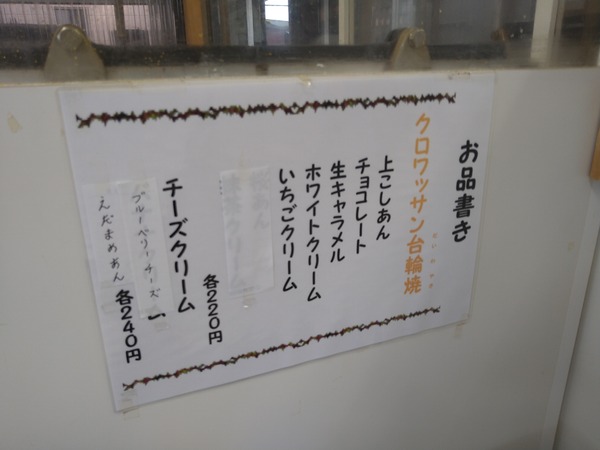 お品書き
クロワッサン台輪焼
だいわやき
上こしあん
チョコレート
生キャラメル
ホワイトクリーム
いちごクリーム
各220円
チーズクリーム
ブルーベリーチーズ
えだまめあん
各240円